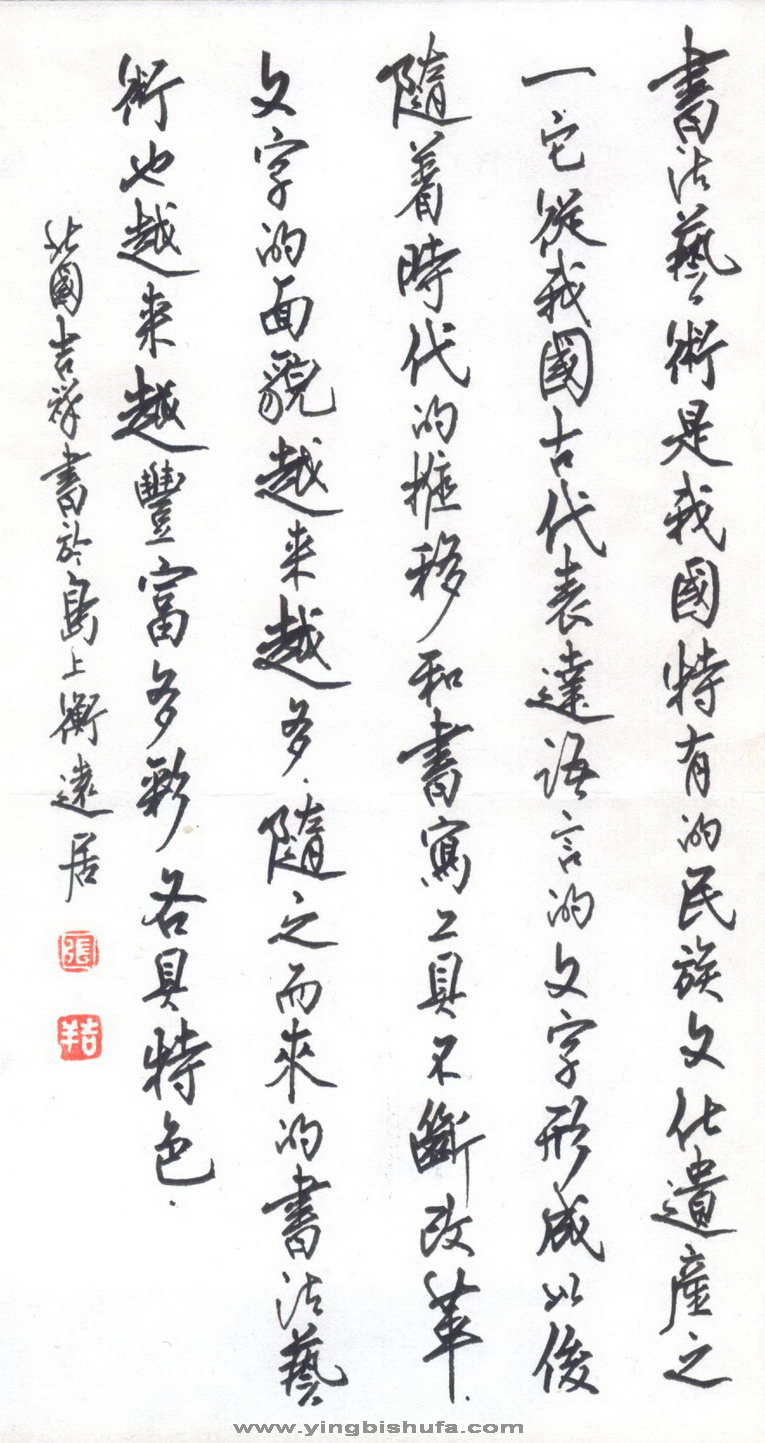 書法藝術是我國特有的民族文化遺產之
一它從我國古代表達語言的文字形成以後
隨着時代的推移和書寫工具不斷改革.
文字的面貌越来越多.隨之而來的書法藝
術也越来越豐富多彩各具特色.
北國吉祥書於島上衡遠居
張
吉羊
www.yingbishufa.com